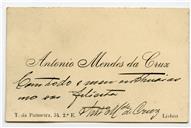 Antonio Mendes da Cruz
Com todo o meu enthusias
mo o felicita
Ant.º M. da Cruz
T. da Palmeira, 34, 2.º E.
Lisboa